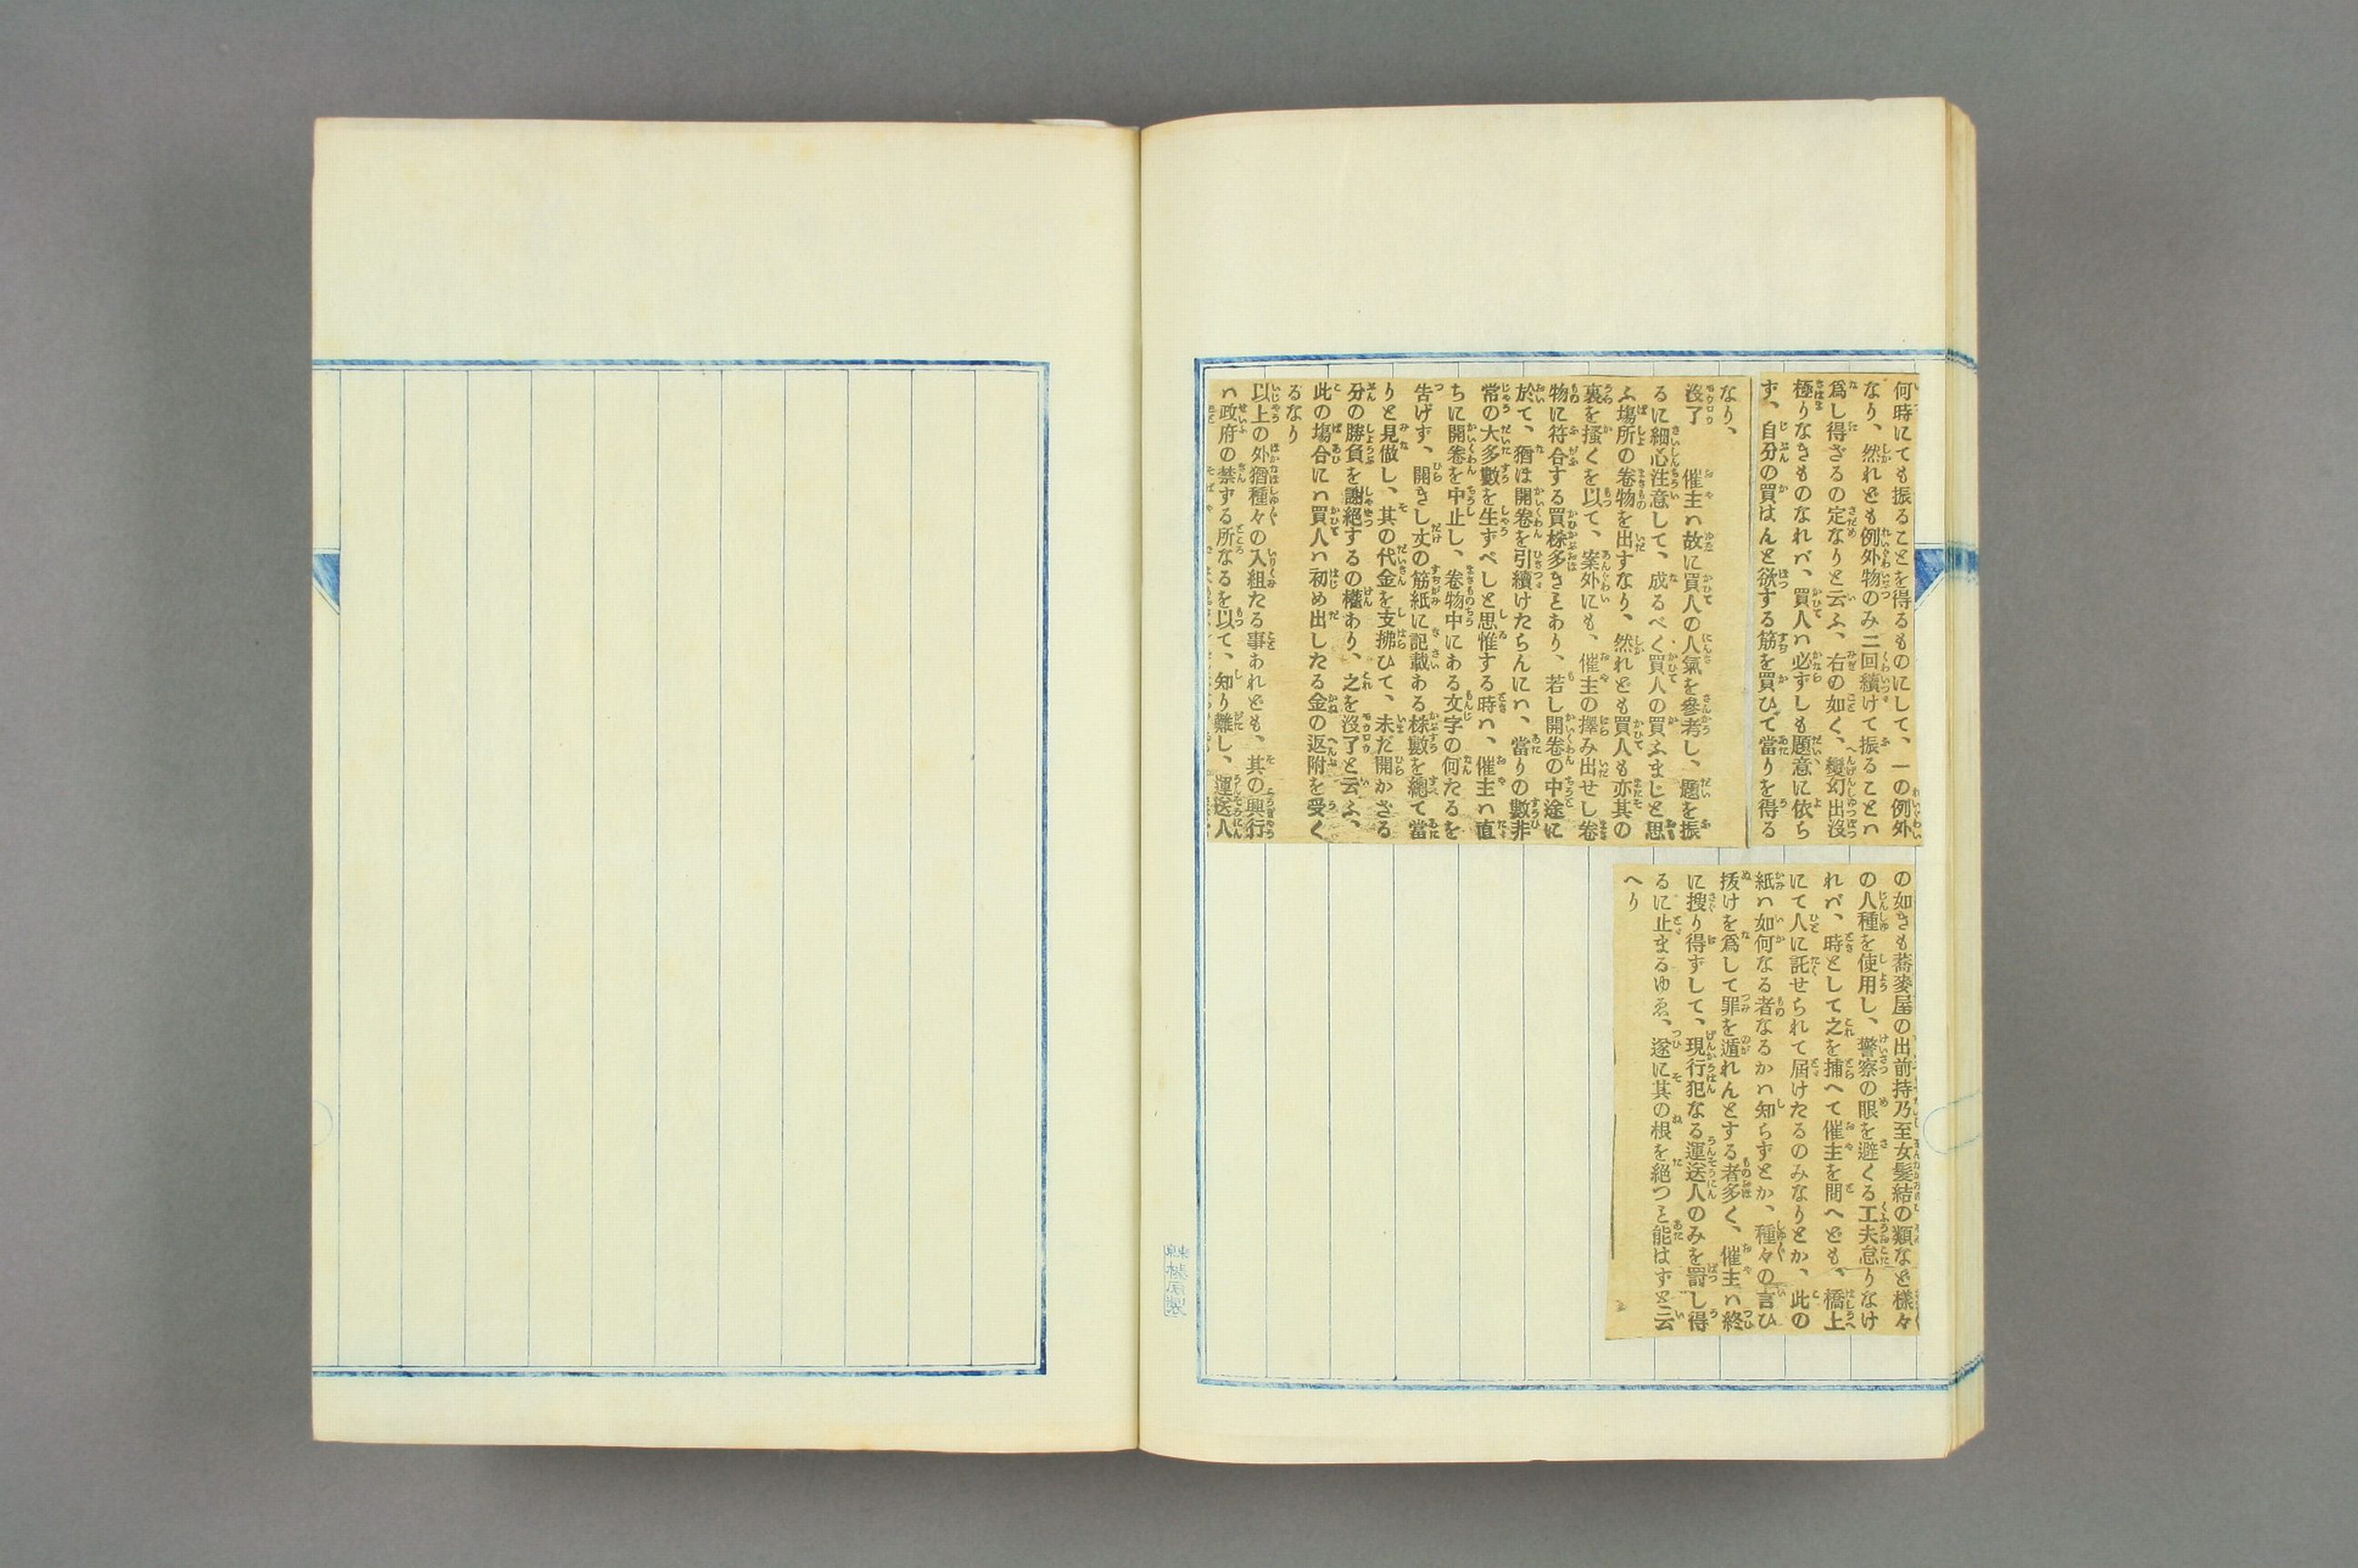 何時にても振ることを得るものにして、一の例外
なり、然れども例外物のみ二回續けて振ることハ
爲し得ざるの定なりと云ふ、右の如く、變幻出沒
極りなきものなれバ、買人ハ必ずしも題意に依ら
ず、自分の買はんと欲する筋を買ひて當りを得る
なり、
沒了 催主ハ故に買人の人氣を參考し、題を振
るに細心注意して、成るべく買人の買ふまじと思
ふ塲所の卷物を出すなり、然れども買人も亦其の
裏を搔くを以て、案外にも、催主の擇み出せし卷
物に符合する買株多きヿあり、若し開卷の中途に
於て、猶ほ開卷を引續けたらんにハ、當りの數非
常の大多數を生ずべしと思惟する時ハ、催主ハ直
ちに開卷を中止し、卷物中にある文字の何たるを
告げず、開きし丈の筋紙に記載ある株數を總て當
りと見做し、其の代金を支拂ひて、未だ開かざる
分の勝負を謝絕するの權あり、之を沒了と云ふ、
此の塲合にハ買人ハ初め出したる金の返附を受く
るなり
以上の外猶種々の入組たる事あれども、其の興行
ハ政府の禁ずる所なるを以て、知り難し、運送人
の如きも蕎麥屋の出前持乃至女髮結の類など樣々
の人種を使用し、警察の眼を避くる工夫怠りなけ
れバ、時として之を捕へて催主を問へども、橋上
にて人に託せられて屆けたるのみなりとか、此の
紙ハ如何なる者なるかハ知らずとか、種々の言ひ
拔けを爲して罪を遁れんとする者多く、催主ハ終
に搜り得ずして、現行犯なる運送人のみを罰し得
るに止まるゆゑ、遂に其の根を絕つヿ能はずと云
へり